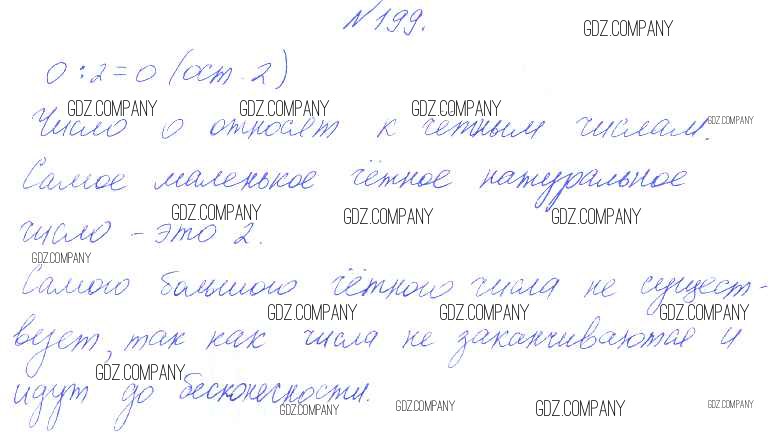 №199.
GDZ.COMPANY
0 : 2 = 0 (ост. 2)
GDZ.COMPANY GDZ.COMPANY GDZ.COMPANY
Число 0 относят к чётным числам.
GDZ.COMPANY
Самое маленькое чётное натуральное
GDZ.COMPANY GDZ.COMPANY GDZ.COMPANY
число – это 2.
GDZ.COMPANY
Самого большого чётного числа не сущест-
GDZ.COMPANY GDZ.COMPANY GDZ.COMPANY
вует, так как числа не заканчиваются и
GDZ.COMPANY
идут до бесконечности.
GDZ.COMPANY GDZ.COMPANY GDZ.COMPANY GDZ.COMPANY